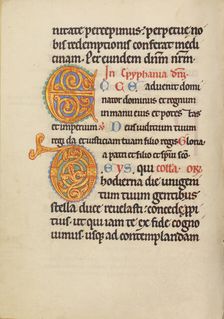 nutate percepimus: perpetue no
bis redemptionis conferat medi
cinam. Per eundem dnm nrm
In epyphania dni
ECCE advenit domi
nator dominus et regnum
in manu eius et potestas
et imperium Ds iudicium tuum
regi da et iusticiam tuam filio regis Gloria
patri et filio et spiri sco
DEUS, qui colla or
hodierna die unigeni
tum tuum gentibus
stella duce revelasti concede ppi
tius. ut qui iam te ex fide cogno
uimus. usq ad contemplandam